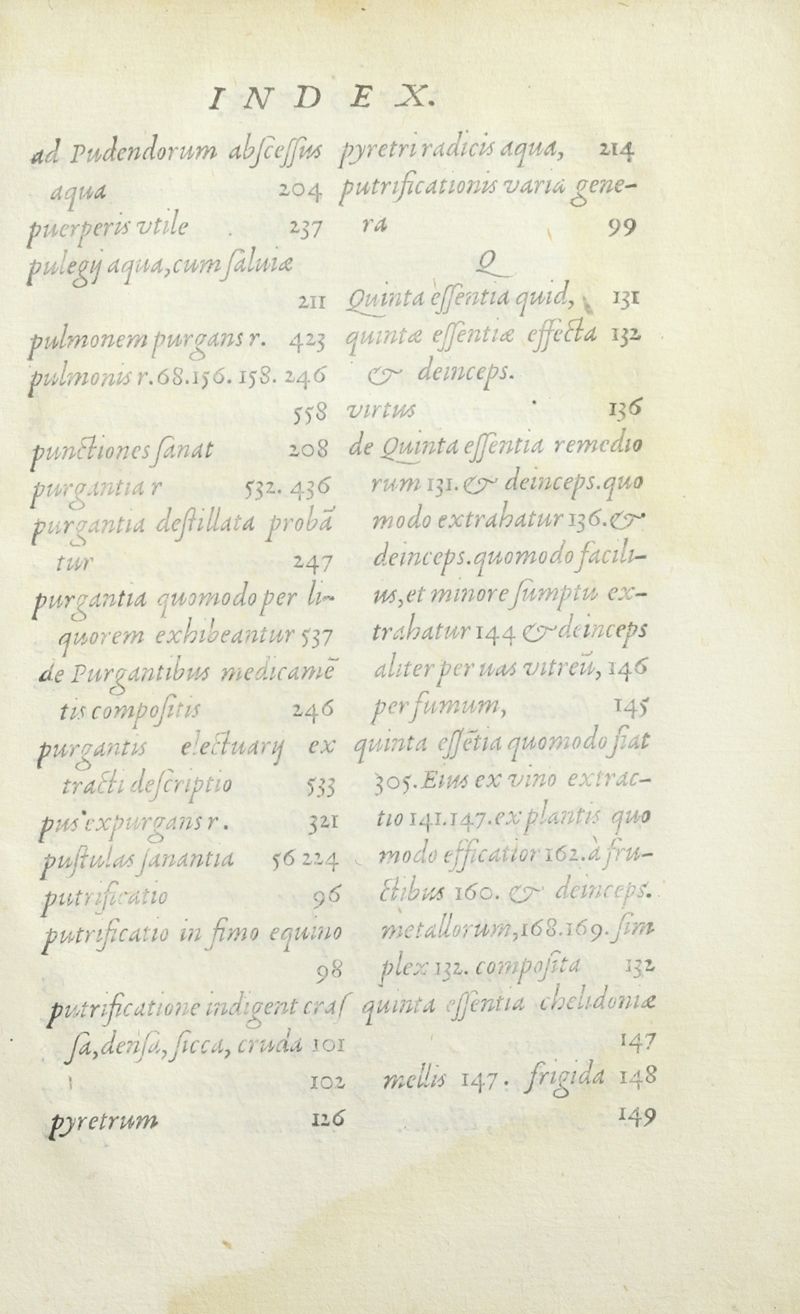 INDEX.
ad Pudendorum abſceſſus
aqua 204
puerperis vtile 237
pulegij aqua, cum ſaluiæ
211
pulmonem purgans r. 423
pulmonis r. 68. 156. 158. 246
558
punctiones ſanat 208
purgantia r 532. 436
purgantia deſtillata probā
tur 247
purgantia quomodo per li-
quorem exhibeantur 537
de Purgantibus medicamē
tis compoſitis 246
purgantis electuarij ex
tracti deſcriptio 533
pus expurgans r. 321
puſtulas ſanantia 56 224
putrificatio 96
putrificatio in fimo equino
98
putrificatione indigent craſ
ſa, denſa, ſicca, cruda 101
102
pyretrum 126
pyretri radicis aqua, 214
putrificationis varia gene-
ra 99
Q
Quinta eſſentia quid, 131
quintæ eſſentiæ effecta 132
& deinceps.
virtus 136
de Quinta eſſentia remedio
rum 131. & deinceps. quo
modo extrahatur 136. &
deinceps. quomodo facili-
us, et minore ſumptu ex-
trahatur 144 & deinceps
aliter per uas vitreū, 146
per fumum, 145
quinta eſſētia quomodo fiat
305. Eius ex vino extrac-
tio 141. 147. ex plantis quo
modo efficatior 162. à fru-
ctibus 160. & deinceps.
metallorum, 168. 169. ſim
plex 132. compoſita 132
quinta eſſentia chelidoniæ
147
mellis 147. frigida 148
149